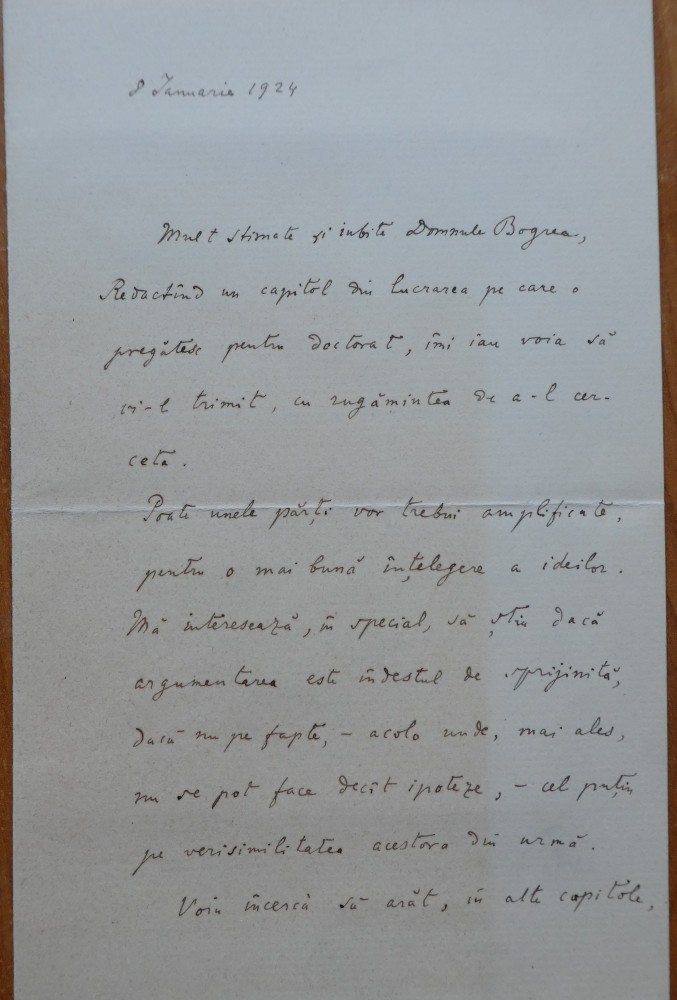 8 Ianuarie 1924
Mult stimate și iubite Domnule Bogrea,
Redactînd un capitol din lucrarea pe care o
pregătesc pentru doctorat, îmi iau voia să
vi-l trimit, cu rugămintea de a-l cer-
ceta.
Poate unele părți vor trebui amplificate,
pentru o mai bună înțelegere a ideilor.
Mă interesează, în special, să știu dacă
argumentarea este îndestul de sprijinită,
dacă nu pe fapte, – acolo unde, mai ales,
nu se pot face decît ipoteze, – cel puțin
pe verisimilitatea acestora din urmă.
Voiu încercà să arăt, în alte capitole,